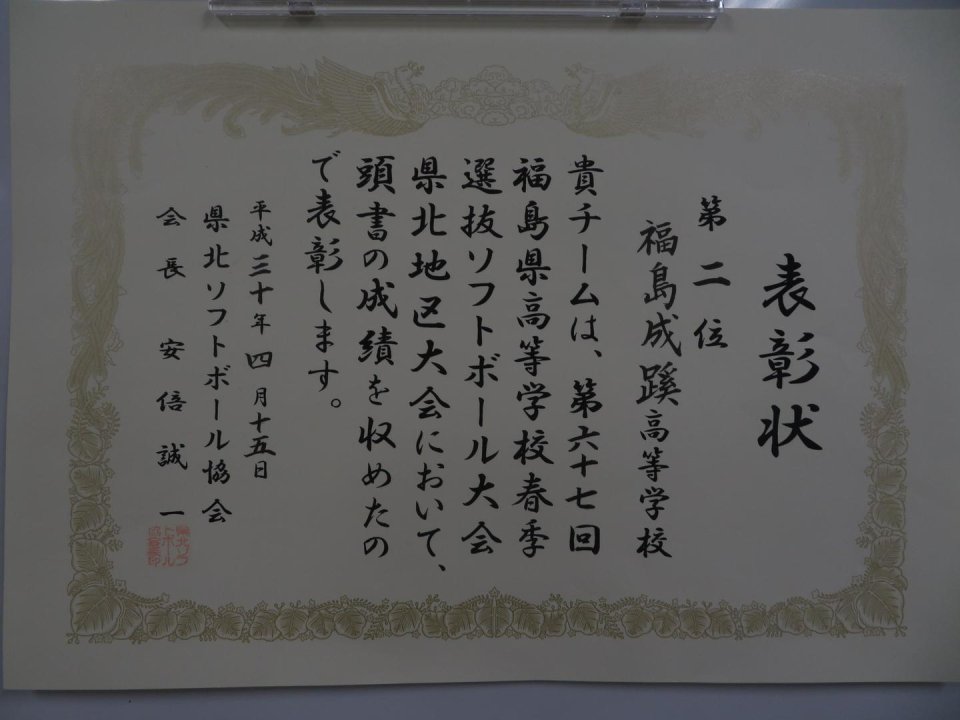 表彰状
第二位
福島成蹊高等学校
貴チームは、第六十七回
福島県高等学校春季
選抜ソフトボール大会
県北地区大会において、
頭書の成績を収めたの
で表彰します。
平成三十年四月十五日
県北ソフトボール協会
会長 安倍誠一